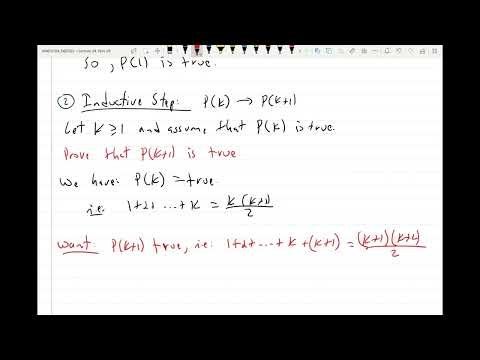 So, P(1) is true.
② Inductive Step: P(k) → P(k+1)
Let k ≥ 1 and assume that P(k) is true.
Prove that P(k+1) is true
We have: P(k) = true.
i.e. 1+2+ ... + k = k(k+1)/2
Want: P(k+1) true, i.e: 1+2+ ... + k + (k+1) = (k+1)(k+2)/2